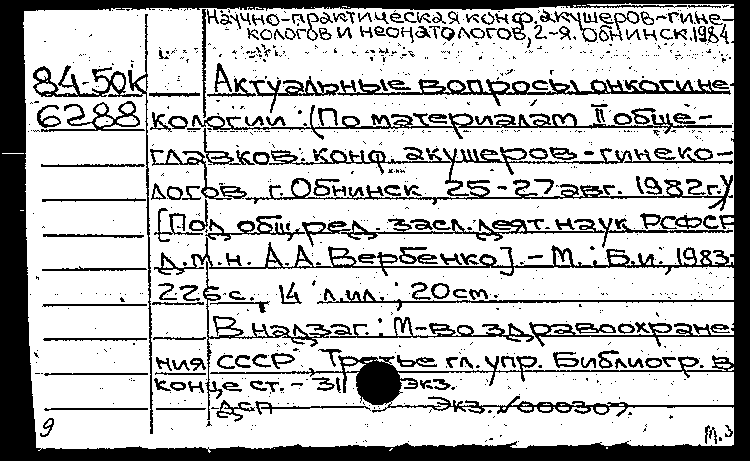 Научно-практическая конф. акушеров-гине-
кологов и неонатологов, 2-я. Обнинск. 1984.
84-50к Актуальные вопросы онкогине-
6288 кологии : (По материалам II обще-
главков. конф. акушеров-гинеко-
логов, г. Обнинск, 25-27 авг. 1982 г.)
[Под общ. ред. засл. деят. наук РСФСР
д.м.н. А.А. Вербенко]. - М. : Б.и., 1983.
226 с., 14 л.ил. ; 20 см.
В надзаг.: М-во здравоохране-
ния СССР, Третье гл. упр. Библиогр. в
конце ст. - 311 экз.
ДСП Экз. №000307.
9